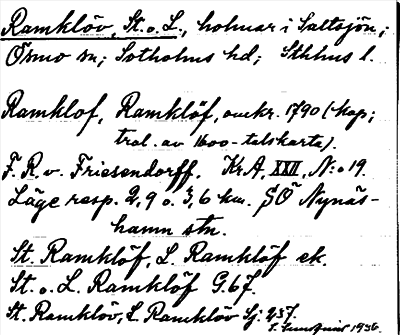 Ramklöv, St. o. L., holmar i Saltsjön;
Ösmo sn; Sotholms hd; Sthlms l.
Ramklof, Ramklöf, omkr. 1790 (kop;
trol. av 1600-talskarta).
F. R. v. Friesendorff. Kr.A, XXII, N:o 19.
Läge resp. 2,9 o. 3,6 km. SÖ Nynäs-
hamn stn.
St. Ramklöf, L. Ramklöf ek.
St. o. L. Ramklöf G. 67.
St. Ramklöv, L. Ramklöv Sj. 237.
1936.